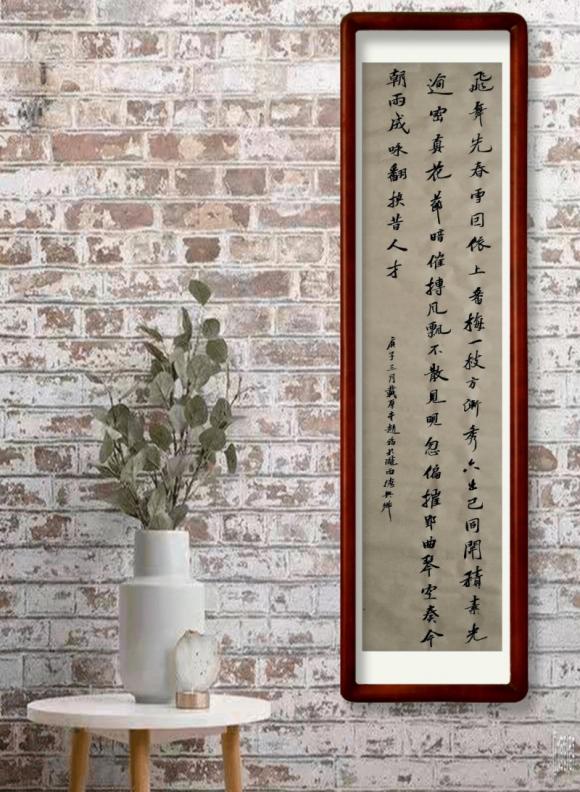 飛舞先春雪因依上番梅一枝方漸秀六出已同開積素光
逾密真花節暗催摶風飄不散見晛忽偏摧郢曲琴空奏今
朝兩成咏翻挾昔人才
庚子三月戴